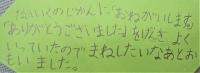 たいいくのじかんに「おねがいします」
「ありがとうございました」をげんきよく
いっていたのでまねしたいなあとお
もいました。